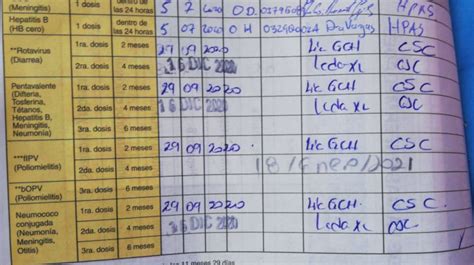 (Meningitis) 1 dosis dentro de las 24 horas 5 7
Hepatitis B (HB cero) 1 dosis dentro de las 24 horas 5 07 2020 O H HPAS
**Rotavirus (Diarrea) 1ra. dosis 2 meses 29 09 2020 Lic GCH CSC
2ra. dosis 4 meses 16 DIC 2020 Lcda XL CSC
Pentavalente (Difteria, Tosferina, Tétanos, Hepatitis B, Meningitis, Neumonía) 1ra. dosis 2 meses 29 09 2020 Lic GCH CSC
2da. dosis 4 meses 16 DIC 2020 Lcda XL CSC
3ra. dosis 6 meses
***fIPV (Poliomielitis) 1ra. dosis 2 meses 29 09 2020 Lic GCH CSC
2da. dosis 4 meses 18/Enero/2021
**bOPV (Poliomielitis) 3ra. dosis 6 meses
Neumococo conjugada (Neumonía, Meningitis, Otitis) 1ra. dosis 2 meses 29 09 2020 Lic GCH CSC
2da. dosis 4 meses 16 DIC 2020 Lcda XL CSC
3ra. dosis 6 meses
11 meses 29 días